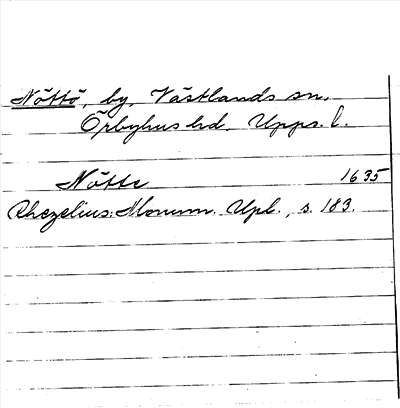 Nöttö, by, Västlands sn.
Örbyhus hd. Upps. l.
Nötte 1635
Rhezelius: Monum. Upl., s. 183.